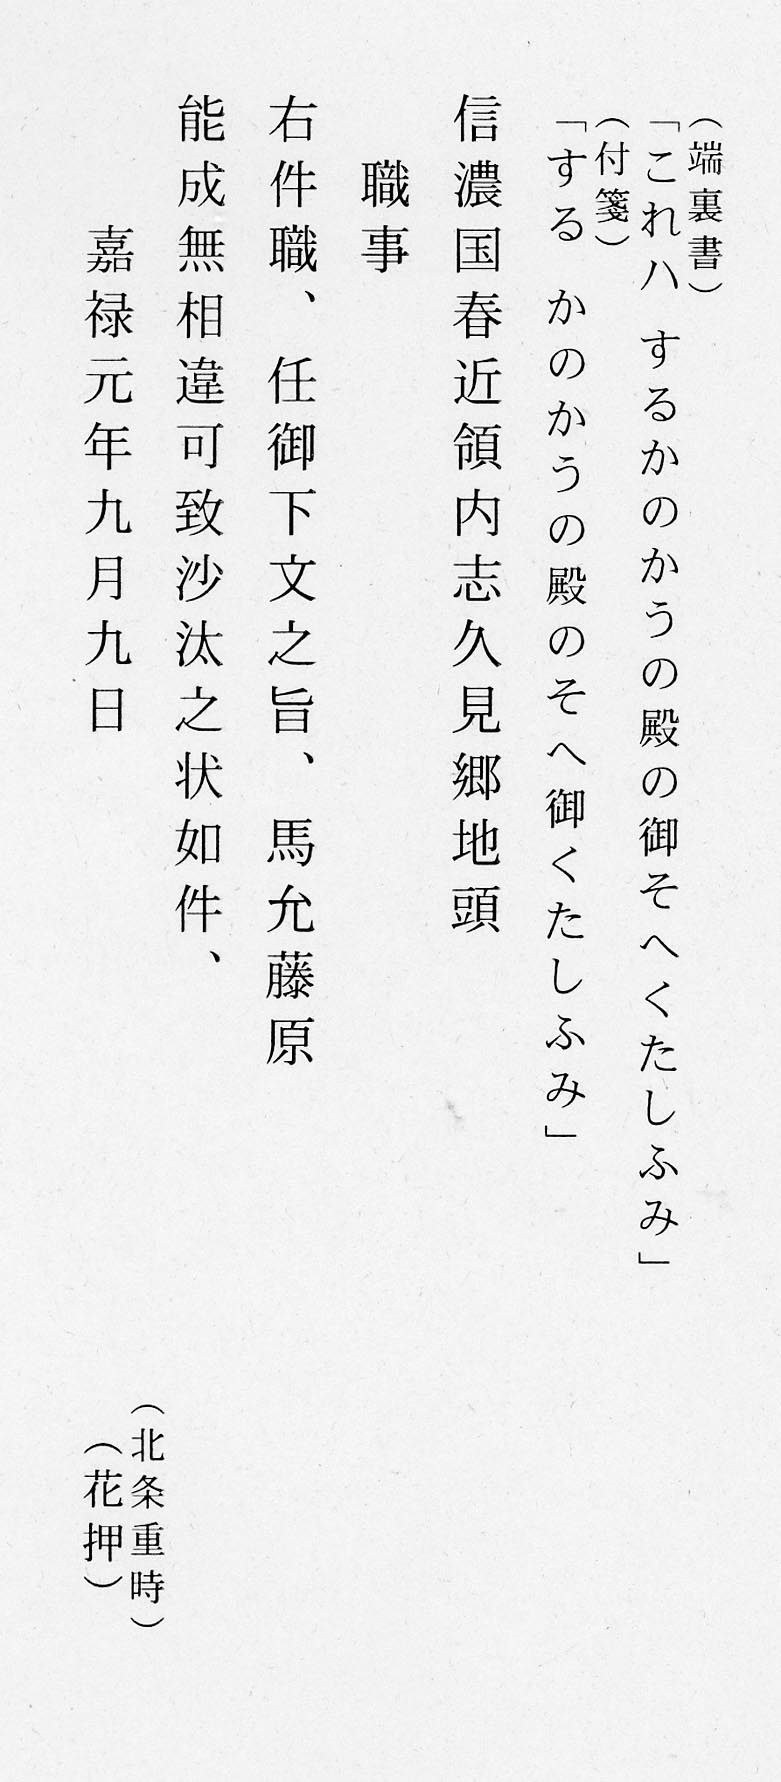 （端裏書）
「これハ　するかのかうの殿の御そへくたしふみ」
（付箋）
「する　かのかうの殿のそへ御くたしふみ」
信濃国春近領内志久見郷地頭
職事
右件職、任御下文之旨、馬允藤原
能成無相違可致沙汰之状如件、
嘉禄元年九月九日
（北条重時）
（花押）